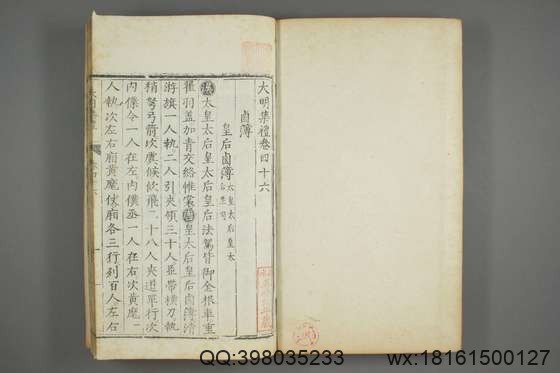 大明集禮卷四十六
鹵簿
皇后鹵簿 太皇太后皇太后並同
漢太皇太后皇太后皇后法駕皆御金根車重
翟羽蓋加青交絡帷裳 皇太后皇后鹵簿清
游旗一人執二人引夾領三十人並帶橫刀執
弩弓箭次虞候佽飛二十八人夾道單行次
內僕令一人在左內僕丞一人在右次黃麾一
人執次左右廂黃麾仗廂各三行列百人左右
QQ:398035233
wx:18161500127